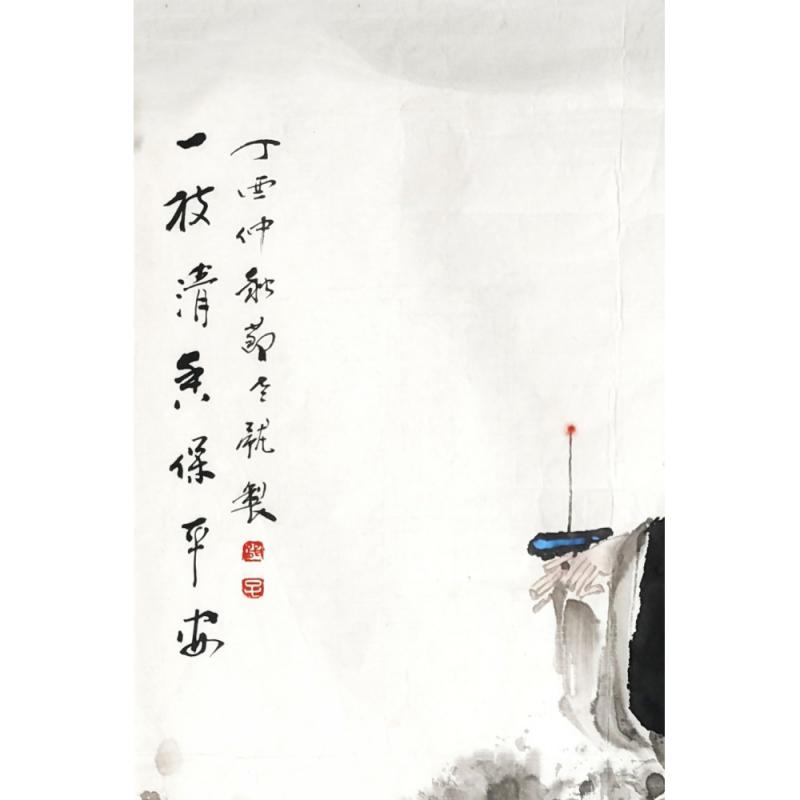 一枝清香保平安
丁酉仲秋節製